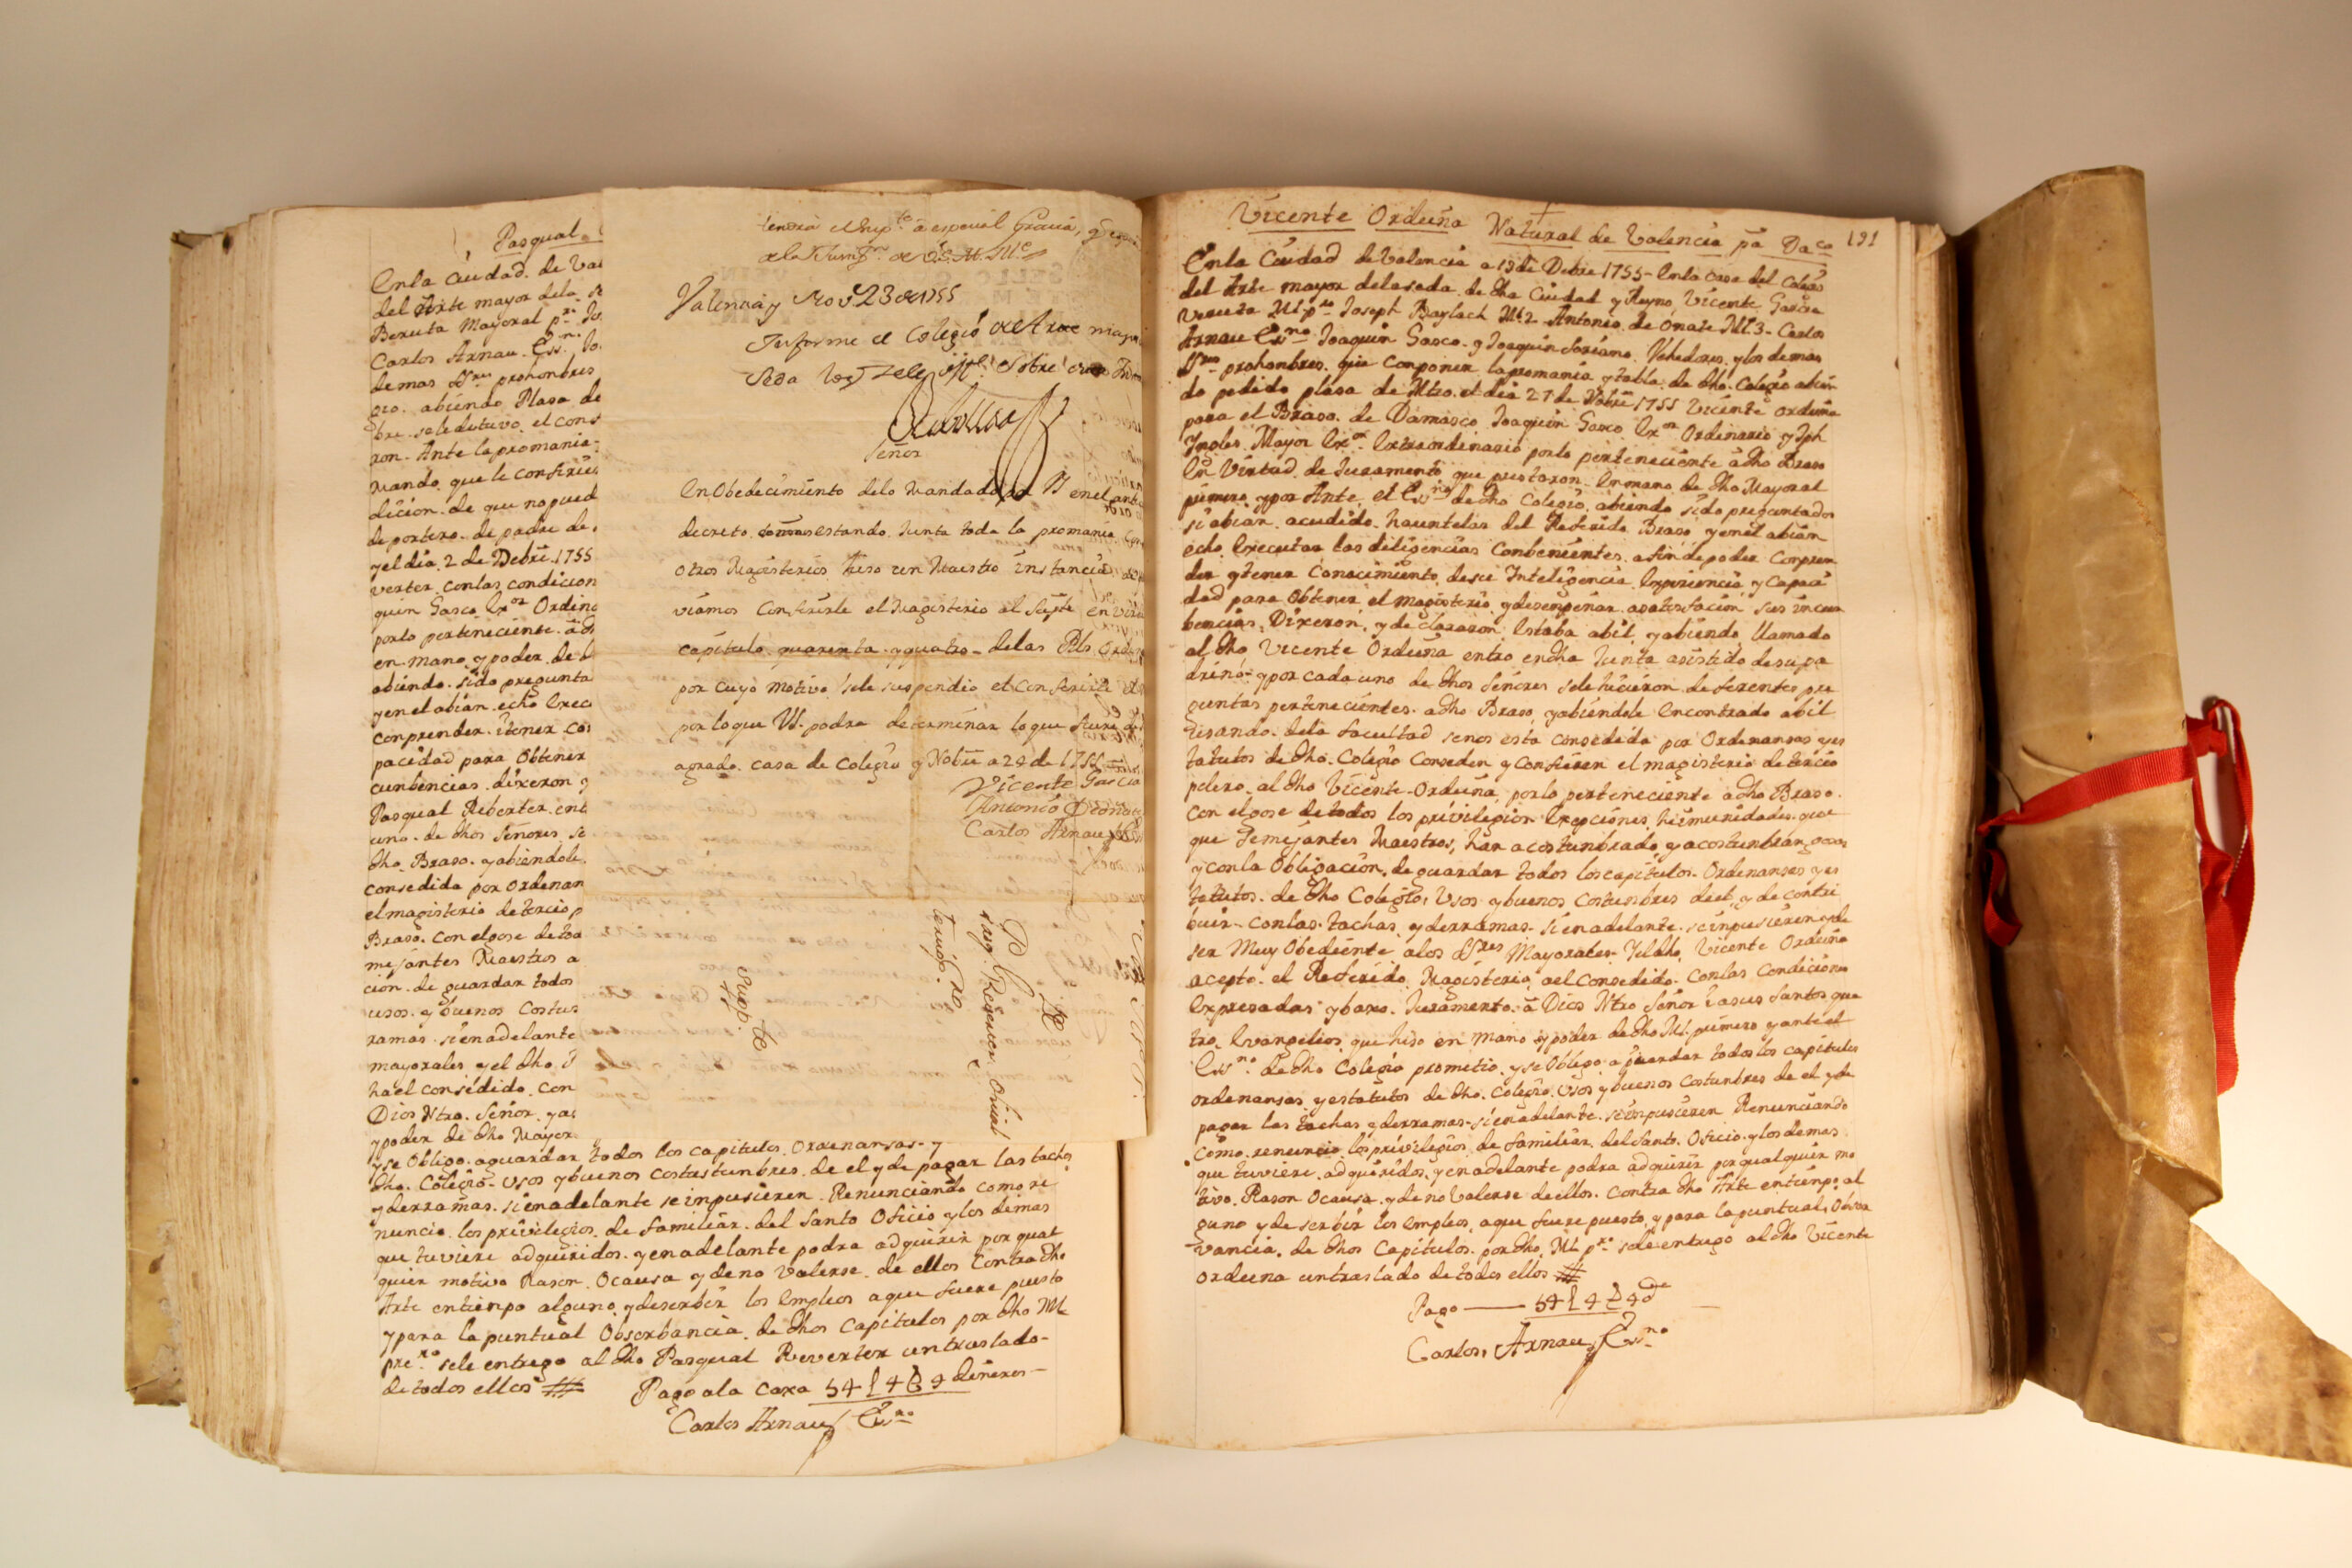 Pasqual
En la Ciudad de Va
del Arte mayor dela se
Beruta Mayoral p.ro Jo
Carlos Arnau Ess.no Jo
demas S.res prohonbres
gio. abiendo Plasa de
bre se le detuvo el cons
ron. Ante la promania
Mando que le confirie
dicion de que no pued
de portero de padre de
y el dia 2 de Debre 1755
verter con las condicion
quin Gasco Ex.or Ordina
por lo perteneciente a dh
en mano y poder de d
abiendo sido pregunta
y en el abian echo Exec
conprender i tener co
pacidad para Obtener
cunbencias dixeron y
Pasqual Reberter ent
uno de dhos Señores se
dho Braso. y abiendole
consedida por ordenan
el magisterio de tercio p
Braso. con el gose de tod
mejantes Maestros a
cion de guardar todos
usos y buenos Costun
ramas si en adelante
mayorales y el dho
ha el consedido con
Dios Ntro. Señor y a
y poder de dho Mayor
y se Obligo aguardar todos los capitulos Ordenansas y
dho. Colegio usos y buenos costustunbres de el y de pagar las tachas
y derramas si en adelante se inpusieren. Renunciando como re
nuncio los privilegios de familiar del Santo Oficio y los demas
que tuviere adquiridos y en adelante podra adquirir por qual
quier motivo Rason Ocausa y de no valerse de ellos Contra dho
Arte entienpo alguno y deserbir los Empleos aque fuere puesto
y para la puntual Obserbancia de dhos Capitulos por dho Ml
pre.ro se le entrego al dho Pasqual Reverter untraslado
detodos ellos
Pago ala caxa 54 L 4 S 9 dineros
Carlos Arnau Ess.no
Gracia,
Valencia y Nov.e 23 de 1755
Informe el Colegio del Arte mayor
Seda
Señor
En Obedecimiento delo Mandado en el ante
decreto estando Junta toda la promania
otros Magisterios hiso un Maestro instancia
viamos Conferirle el Magisterio al Supte en vir
capitulo quarenta y quatro delas Rls Orden
por cuyo motivo sele suspendio el conferirle
por lo que VS. podra determinar lo que fuere de
agrado. casa de Colegio y Nobre a 29 de 1755
Vicente Garcia
Antonio de Oñate
Carlos Arnau
Supp.te
Vicente Orduña Natural de Valencia pa Da.co 191
En la Ciudad de Valencia a 19 de Debre 1755 - En la Casa del Colegio
del Arte mayor delaseda de dha Ciudad y Reyno, Vicente Garcia
Veruta Ml p.ro Joseph Baylach Ml 2 Antonio de Oñate Ml 3 - Carlos
Arnau Ess.no Joaquin Gasco y Joaquin Soriano Vehedores y los demas
S.res prohombres que Conponen la promania y tabla de dho Colegio abien
do pedido plasa de Mtro. el dia 27 de Nobre 1755 Vicente orduña
para el Braso de Damasco Joaquin Gasco Ex.or Ordinario y Jph
Ingles Mayor Ex.or Extraordinario por lo perteneciente a dho Braso
En Virtud de Juramento que prestaron En mano de dho Mayoral
primero y por Ante el Ess.no de dho Colegio abiendo sido preguntados
si abian acudido haun telar del Referido Braso y en el abian
echo Executar las diligencias Conbenientes a fin de poder Conpren
der y tener Conocimiento desu Inteligencia Experiencia y Capaci
dad para Obtener el magisterio y desenpeñar asatisfacion sus incun
bencias. Dixeron y declararon Estaba abil y abiendo llamado
al dho Vicente Orduña entro en dha Junta asistido de su pa
drino y por cada uno de dhos señores sele hicieron deferentes pre
guntas pertenecientes a dho Braso y abiendole Encontrado abil
usando dela facultad se nos esta Consedida por Ordenansas y es
tatutos de dho Colegio Conseden y Confieren el magisterio de tercio
pelero al dho Vicente Orduña por lo perteneciente a dho Braso.
Con el gose de todos los privilegios Exepciones, he imunidades que
que Semejantes Maestros, han acostunbrado y acostunbran gosar
y con la Obligacion de guardar todos los capitulos Ordenansas y es
tatutos de dho Colegio, Usos y buenos Costunbres de el y de contri
buir con las tachas y derramas si en adelante se inpusieren y de
ser Muy Obediente alos S.res Mayorales. Y el dho Vicente Orduña
acepto el Referido Magisterio ael Consedido con las Condiciones
Expresadas y baxo Juramento a Dios Ntro Señor i asus Santos qua
tro Evangelios que hiso en mano y poder de dho Ml. primero y ante el
Ess.no de dho Colegio prometio y se Obligo a guardar todos los capitulos
ordenansas y estatutos de dho Colegio usos y buenos Costunbres de el y de
pagar las tachas y derramas si en adelante se inpusieren Renunciando
Como renuncio los privilegios de familiar del Santo Oficio y los demas
que tuviere adquiridos y en adelante podra adquirir por qualquier mo
tivo Rason Ocausa y de no Valerse de ellos Contra dho Arte entienpo al
guno y de serbir los Empleos aque fuere puesto y para la puntual Obser
vancia de dhos Capitulos por dho Ml p.ro sele entrego al dho Vicente
orduña untraslado de todos ellos
Pago 54 L 4 S 9 d
Carlos Arnau Ess.no